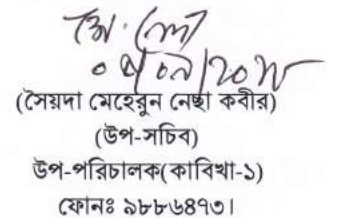 (সৈয়দা মেহেরুন নেছা কবীর)
(উপ-সচিব)
উপ-পরিচালক(কাবিখা-১)
ফোনঃ ৯৮৮৬৪৭৩।